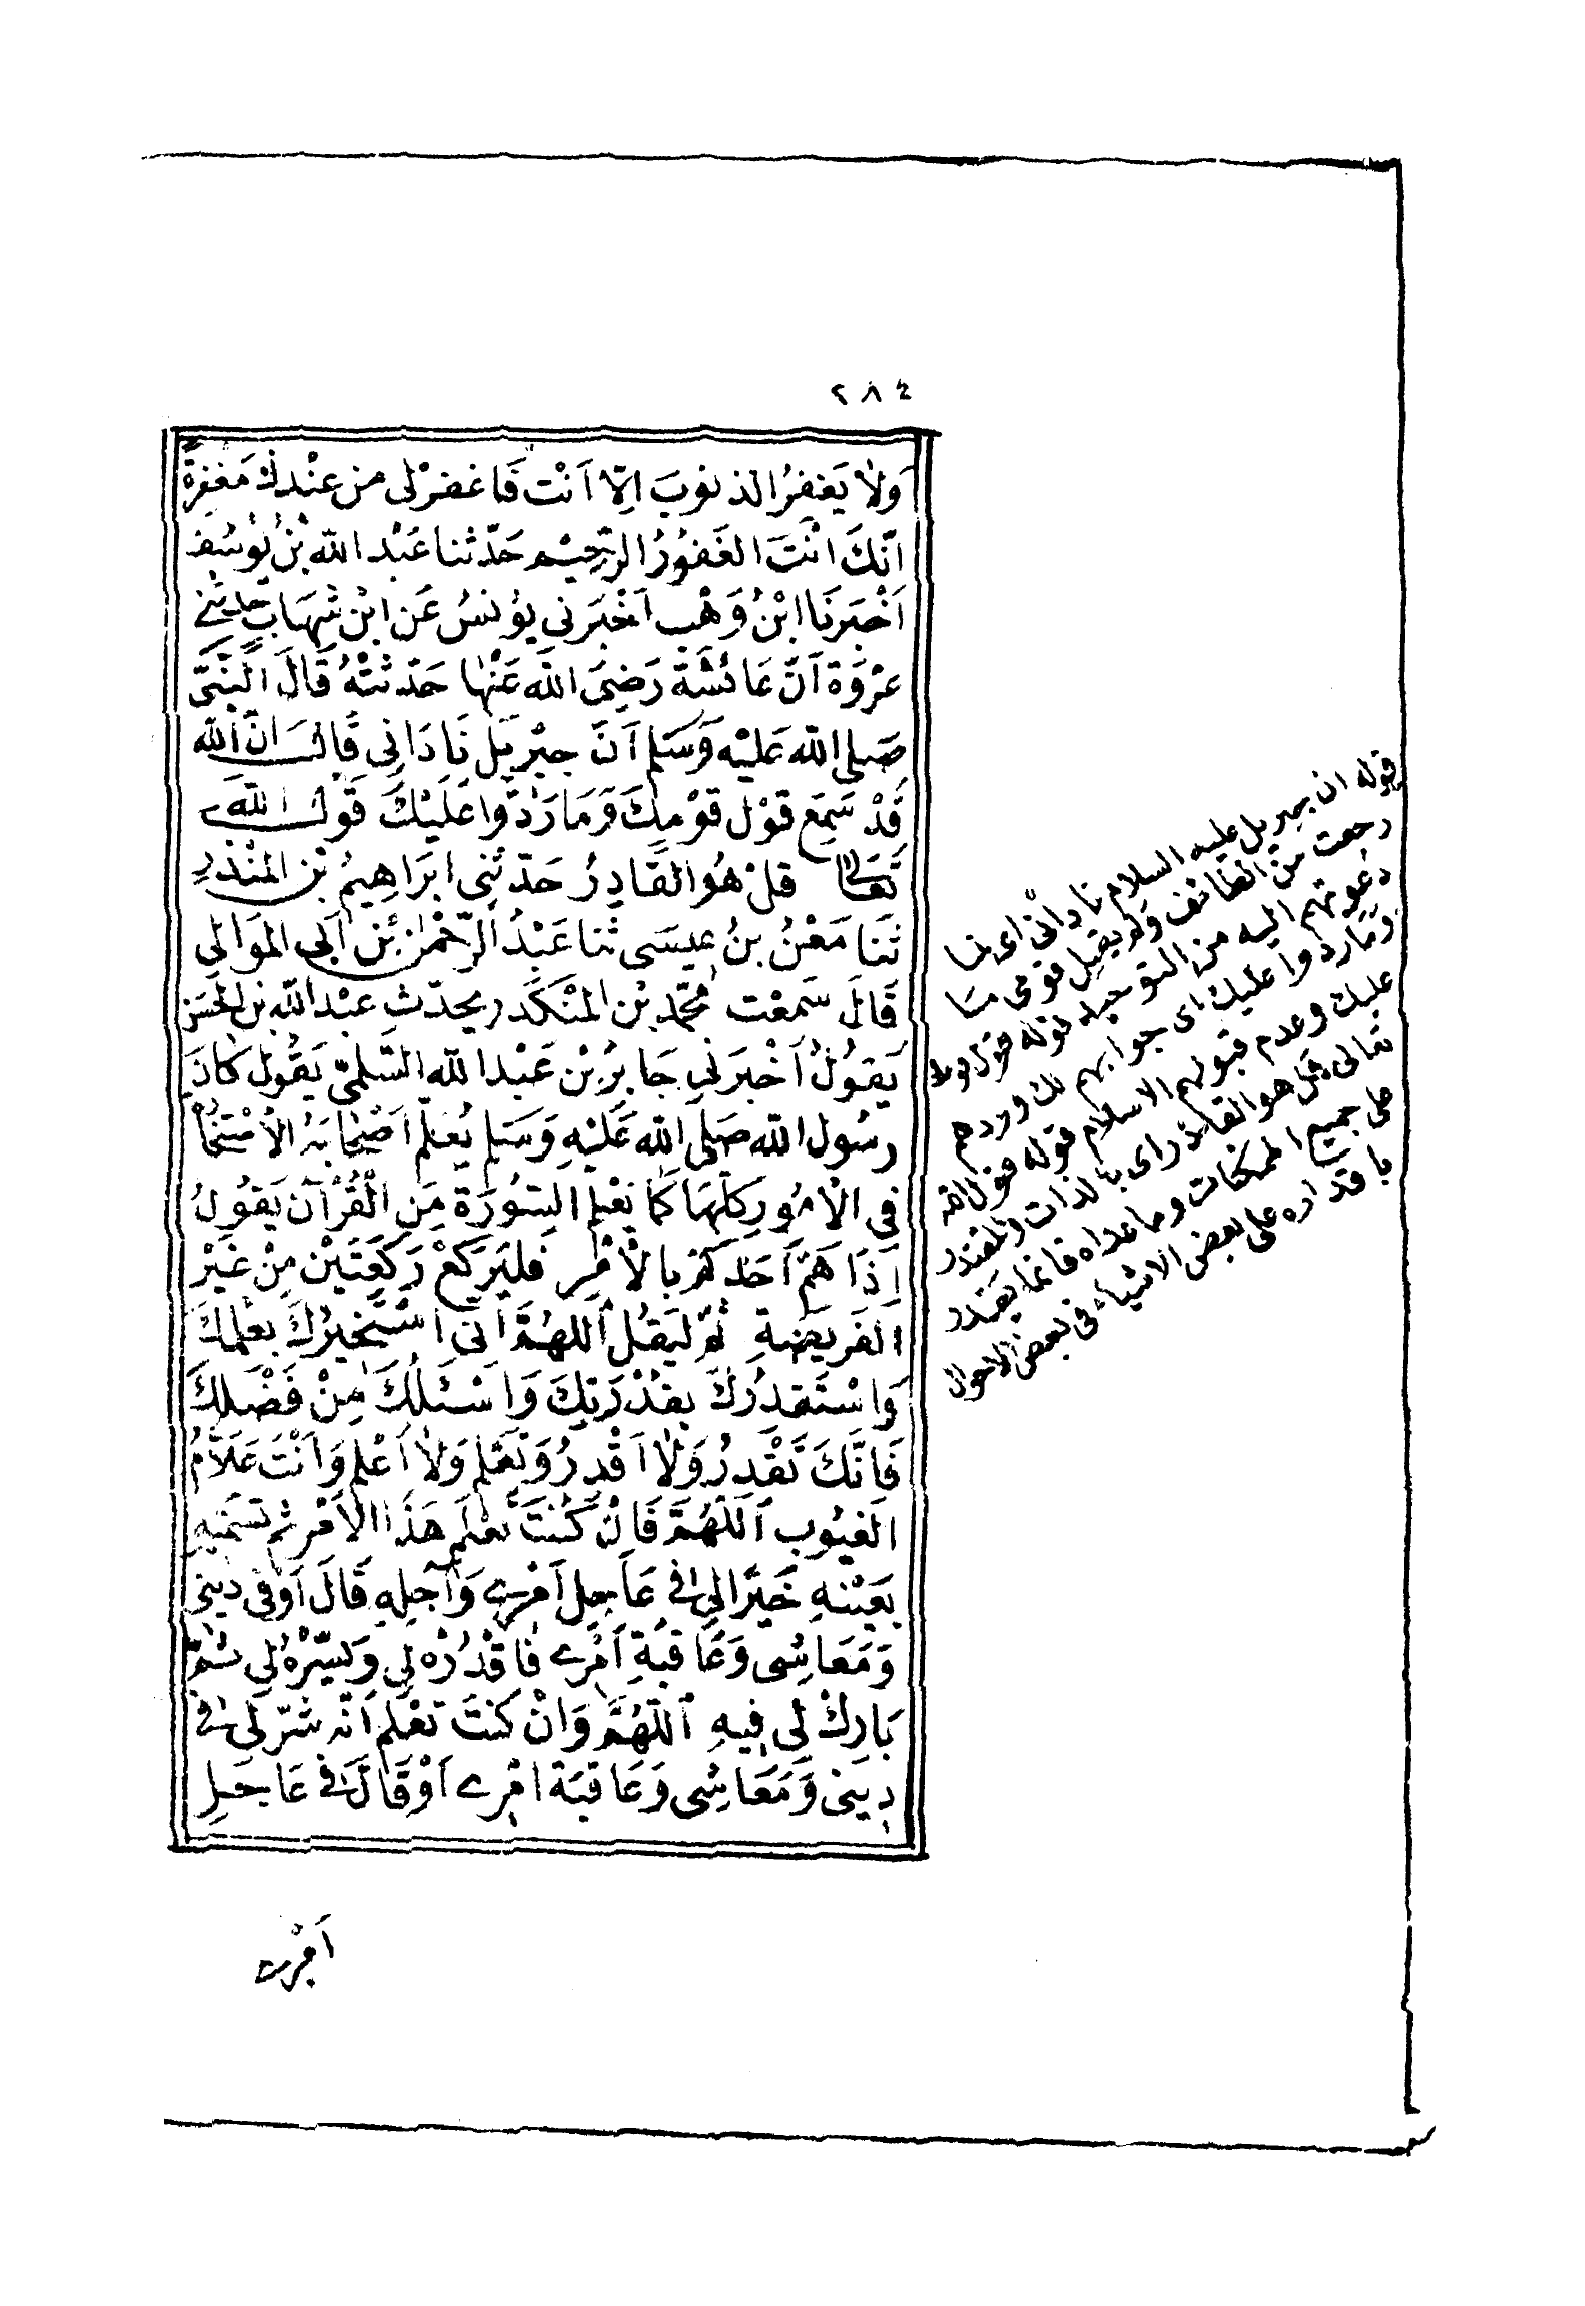 ٢٨٤
وَلا يَغفِرُ الذنوبَ اِلّا اَنْتَ فَاغفرْلى من عنْدك مَغفِرةً
انّكَ انْتَ الغَفوُرُ الرّحيْم حَدّثنا عَبْد اللّه بْنُ يوُسُف
اَخْبَرنَا ابْنُ وَهْب اَخْبَرنى يوُنسُ عَن ابْن شهَاب حدثنى
عرْوَة اَنّ عَائشَة رَضىَ اللّه عَنْها حَدّثتْهُ قَالَ النَّبىّ
صَلى اللّه عَليْه وَسَلم اَنّ جبْريَل نَادَانِى قَالَ انّ اللّه
قَدْ سَمعَ قوْل قوْمكَ وَمَا رَدّوا عَلَيْكَ قَوْل اللّه
تَعَالى قلْ هُوَ القَادِرُ حَدّثنِى ابرَاهِيمُ بْن المنْذر
ثَنَا مَعْنُ بنُ عيسَى ثنا عَبْدُ الرّحْمن بْن اَبى الموَالى
قَالَ سَمعْت محُمّد بْن المنْكَدر يحدّث عبْد اللّه بن الحسَن
يَقوُلُ اَخْبرَنى جَابِرُ بْن عَبْد اللّه السّلمىّ يَقُول كَانَ
رسُول اللّه صَلى اللّه عَلَيْهِ وَسَلم يُعَلم اَصْحَابَهُ الاسْتخَا
فى الامُورِ كلّهَا كَمَا يُعْلم السّورَة مَن الْقُرْآن يَقُولُ
اِذَا هَمّ اَحَدكمْ بالْاَمْر فَليَركَعْ رَكعَتَيْن مِنْ غيْر
الفَريضَةِ ثمّ ليَقل اَللهُمَّ انى اَسْتَخيرُكَ بعلمكَ
وَاسْتَقدُركَ بقدْرَتِكَ وَاسْئَلُكَ مِنْ فَضْلكَ
فَانّكَ تَقْدِرُ وَلا اَقْدِرُ وَتَعْلَم وَلا اَعْلم وَانْتَ عَلّامُ
الغيُوب اَللّهُمَّ فَانْ كُنتَ تَعْلَم هَذَا الاَمْر ثم تسَمّيهِ
بعَيْنهِ خَيرًا لِى فى عَاجل اَمْرى وَآجلِهِ قَالَ اَوْ فى دينى
وَمَعَاشى وَعَاقبَةِ اَمْرى فاقْدُرْه لى وَيَسّرْهُ لِى ثمّ
بَارِكْ لى فِيهِ اَللّهُمَّ وَانْ كنتَ تعْلَم اَنّه شَرّ لى فى
دِينى وَمَعَاشى وَعَاقبَة امْرى اَوْ قَالَ فى عَاجَل
اَمْرى
قوله ان جبريل عليه السلام ناداْنى اى لما
رجعت من الطائف ولم يقبل قومى ما
دعوتهم اليه من التوحيد قوله قول قومك
وما ردوا عليك اى جوابهم لك وردهم
عليك وعدم قبولهم الاسلام قوله قول الله
تعالى قل هو القادر اى بالذات والمقتدر
على جميع الممكنات وما عداه فانما يقتدر
باقداره على بعض الاشياء فى بعض الاحوال